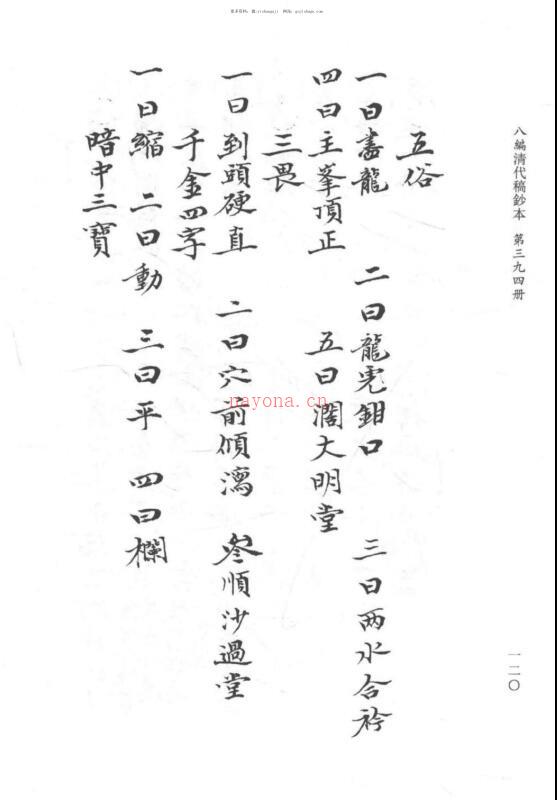 八編清代稿鈔本　第三九四册
一二〇
五俗
一曰盡龍　二曰龍虎鉗口　三曰两水合衿
四曰主峯頂正　五曰濶大明堂
三畏
一曰到頭硬直　二曰穴前傾瀉　叄順沙過堂
千金四字
一曰縮　二曰動　三曰平　四曰欄
暗中三寶
nayona.cn